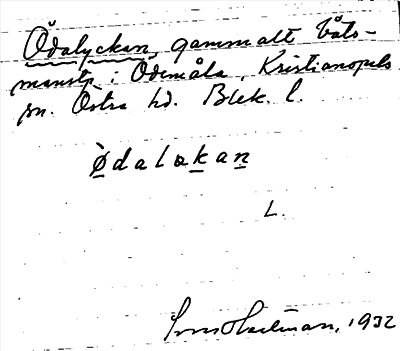 Ödalyckan, gammalt båts-
manstp i Ödemåla, Kristianopels
sn. Östra hd. Blek. l.
Ødalakan
L.
Hartman, 1932